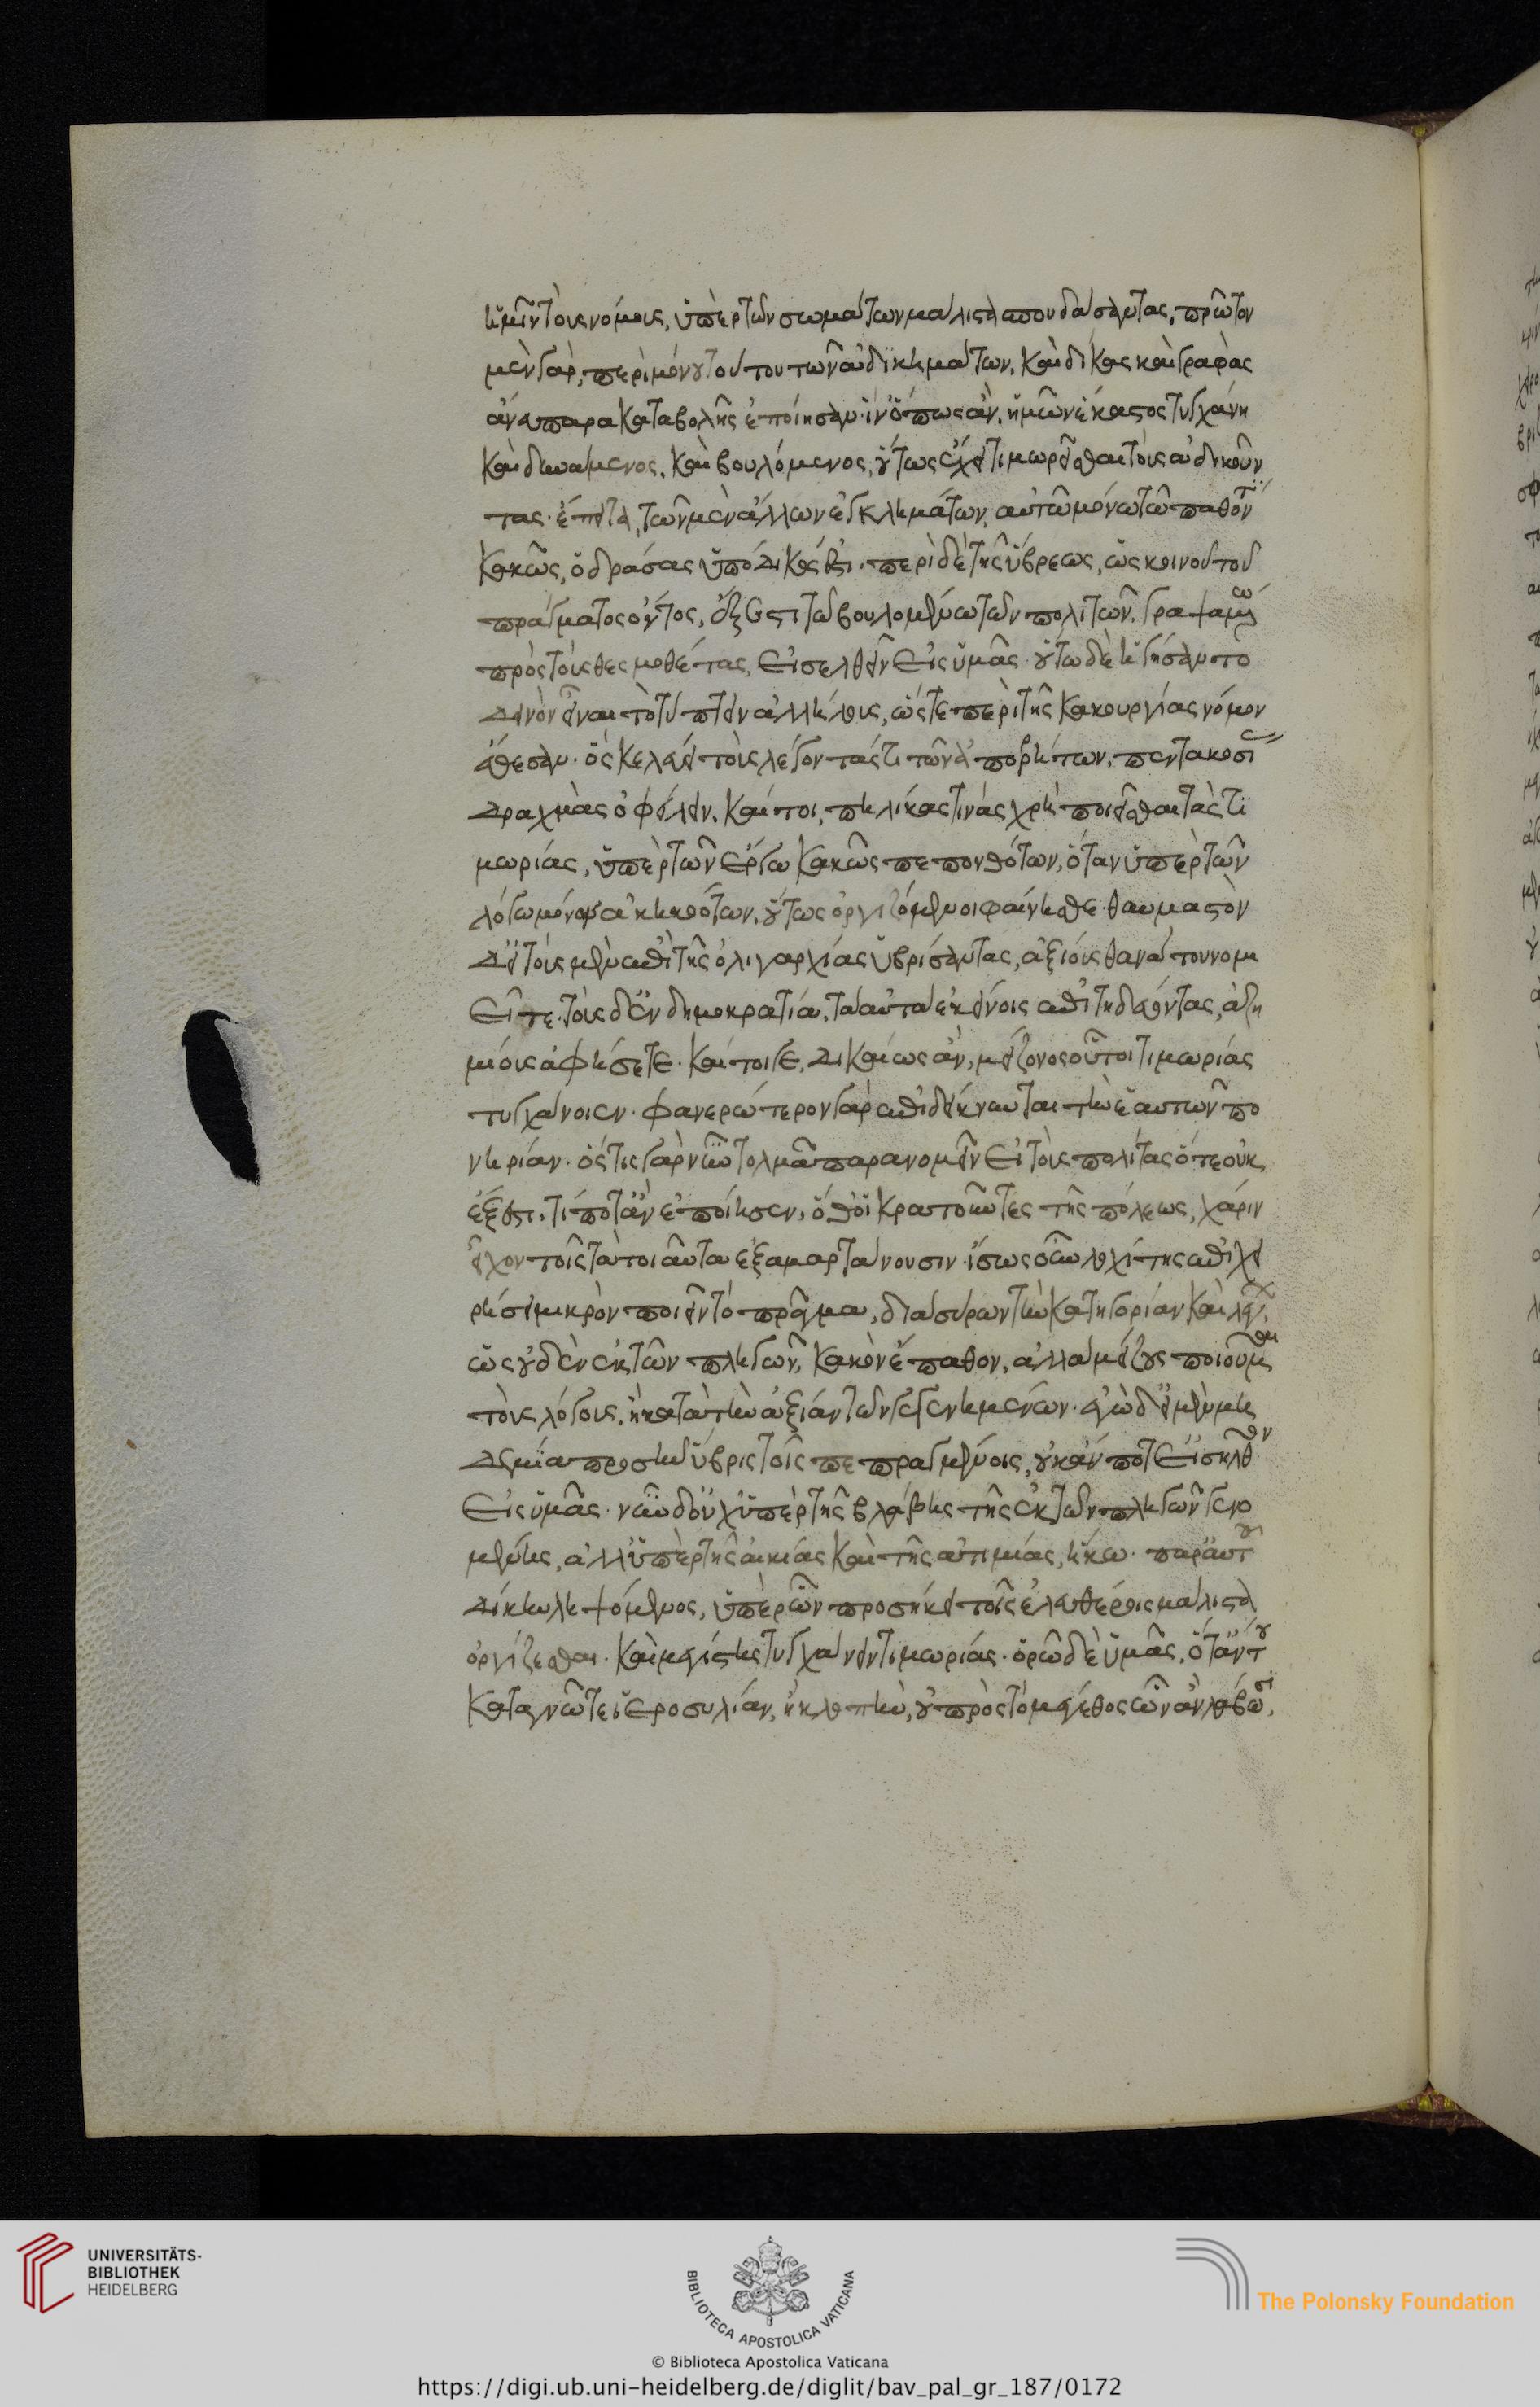 ἡμῖν τοὺς νόμους, ὑπὲρ τῶν σωμάτων μάλιστα σπουδάσαντας, πρῶτον
μὲν γὰρ, περὶ μόνου τούτου τῶν ἀδικημάτων, καὶ δίκας καὶ γραφὰς
ἄνευ παρακαταβολῆς ἐποίησαν· ἵν' ὅπως ἂν, ἡμῶν ἕκαστος τυγχάνη
καὶ δυνάμενος, καὶ βουλόμενος, οὕτως ἔχει τιμωρεῖσθαι τοὺς ἀδικοῦν
τας· ἔπειτα, τῶν μὲν ἄλλων ἐγκλημάτων, αὐτῶ μόνω τῶ παθόντι
κακῶς, ὁ δράσας ὑπόδικός ἐστι· περὶ δὲ τῆς ὕβρεως, ὡς κοινοῦ τοῦ
πράγματος ὄντος, ἔξεστι τῶ βουλομένω τῶν πολιτῶν, γραψαμένω
πρὸς τοὺς θεσμοθέτας, εἰσελθεῖν εἰς ὑμᾶς· οὕτω δὲ ἡγήσαντο
δεινὸν εἶναι τὸ τύπτειν ἀλλήλους, ὥστε περὶ τῆς κακουργίας νόμον
ἔθεσαν· ὃς κελεύει τοὺς λέγοντάς τι τῶν ἀπορρήτων, πεντακοσίας
δραχμὰς ὀφείλειν. καίτοι, πηλίκας τινὰς χρὴ ποιεῖσθαι τὰς τι
μωρίας, ὑπὲρ τῶν ἔργω κακῶς πεπονθότων, ὅταν ὑπὲρ τῶν
λόγω μόνον ἀκηκοότων, οὕτως ὀργιζόμενοι φαίνησθε· θαυμαστὸν
δ' εἰ τοὺς μὲν ἐπὶ τῆς ὀλιγαρχίας ὑβρίσαντας, ἀξίους θανάτου νομι
εῖτε· τοὺς δ' ἐν δημοκρατία, ταὐτὰ ἐκείνοις ἐπιτηδεύοντας, ἀζη
μίους ἀφήσετε· καίτοι γε, δικαίως ἂν, μείζονος οὗτοι τιμωρίας
τυγχάνοιεν· φανερώτερον γὰρ ἐπιδείκνυνται τὴν ἑαυτῶν πο
νηρίαν· ὅστις γὰρ νῦν τολμᾶ παρανομεῖν εἰ τοὺς πολίτας ὅτε οὐκ
ἔξεστι, τί ποτ' ἂν ἐποίησεν, ὅθ' οἱ κρατοῦντες τῆς πόλεως, χάριν
εἶχον τοῖς τὰ τοιαῦτα ἐξαμαρτάνουσιν· ἴσως οὖν λοχίτης ἐπιχει
ρήσει μικρὸν ποιεῖν τὸ πρᾶγμα, διασύρων τὴν κατηγορίαν καὶ λέγων,
ὡς οὐδὲν ἐκ τῶν πληγῶν, κακὸν ἔπαθον, ἀλλὰ μείζους ποιοῦμαι
τοὺς λόγους, ἢ κατὰ τὴν ἀξίαν τῶν γεγενημένων· ἐγὼ δ' εἰ μὲν μη
δεμία προσῆν ὕβρις τοῖς πεπραγμένοις, οὐκ ἄν ποτ' εἰσῆλθον
εἰς ὑμᾶς· νῦν δ' οὐχ ὑπὲρ τῆς βλάβης τῆς ἐκ τῶν πληγῶν γενο
μένης, ἀλλ' ὑπὲρ τῆς αἰκίας καὶ τῆς ἀτιμίας, ἥκω· παρ' αὐτοῦ
δίκην ληψόμενος, ὑπὲρ ὧν προσήκει τοῖς ἐλευθέροις μάλιστα
ὀργίζεσθαι· καὶ μεγίστης τυγχάνειν τιμωρίας· ὁρῶ δὲ ὑμᾶς, ὅταν του
καταγνῶτε ἱεροσυλίαν, ἢ κλοπὴν, οὐ πρὸς τὸ μέγεθος ὧν ἂν λάβωσι,
UNIVERSITÄTS-
BIBLIOTHEK
HEIDELBERG
BIBLIOTECA APOSTOLICA VATICANA
The Polonsky Foundation
© Biblioteca Apostolica Vaticana
https://digi.ub.uni-heidelberg.de/diglit/bav_pal_gr_187/0172